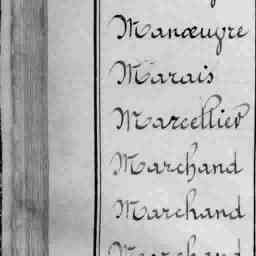 Manœuvre
Marais
Marcellier
Marchand
Marchand
Marchand